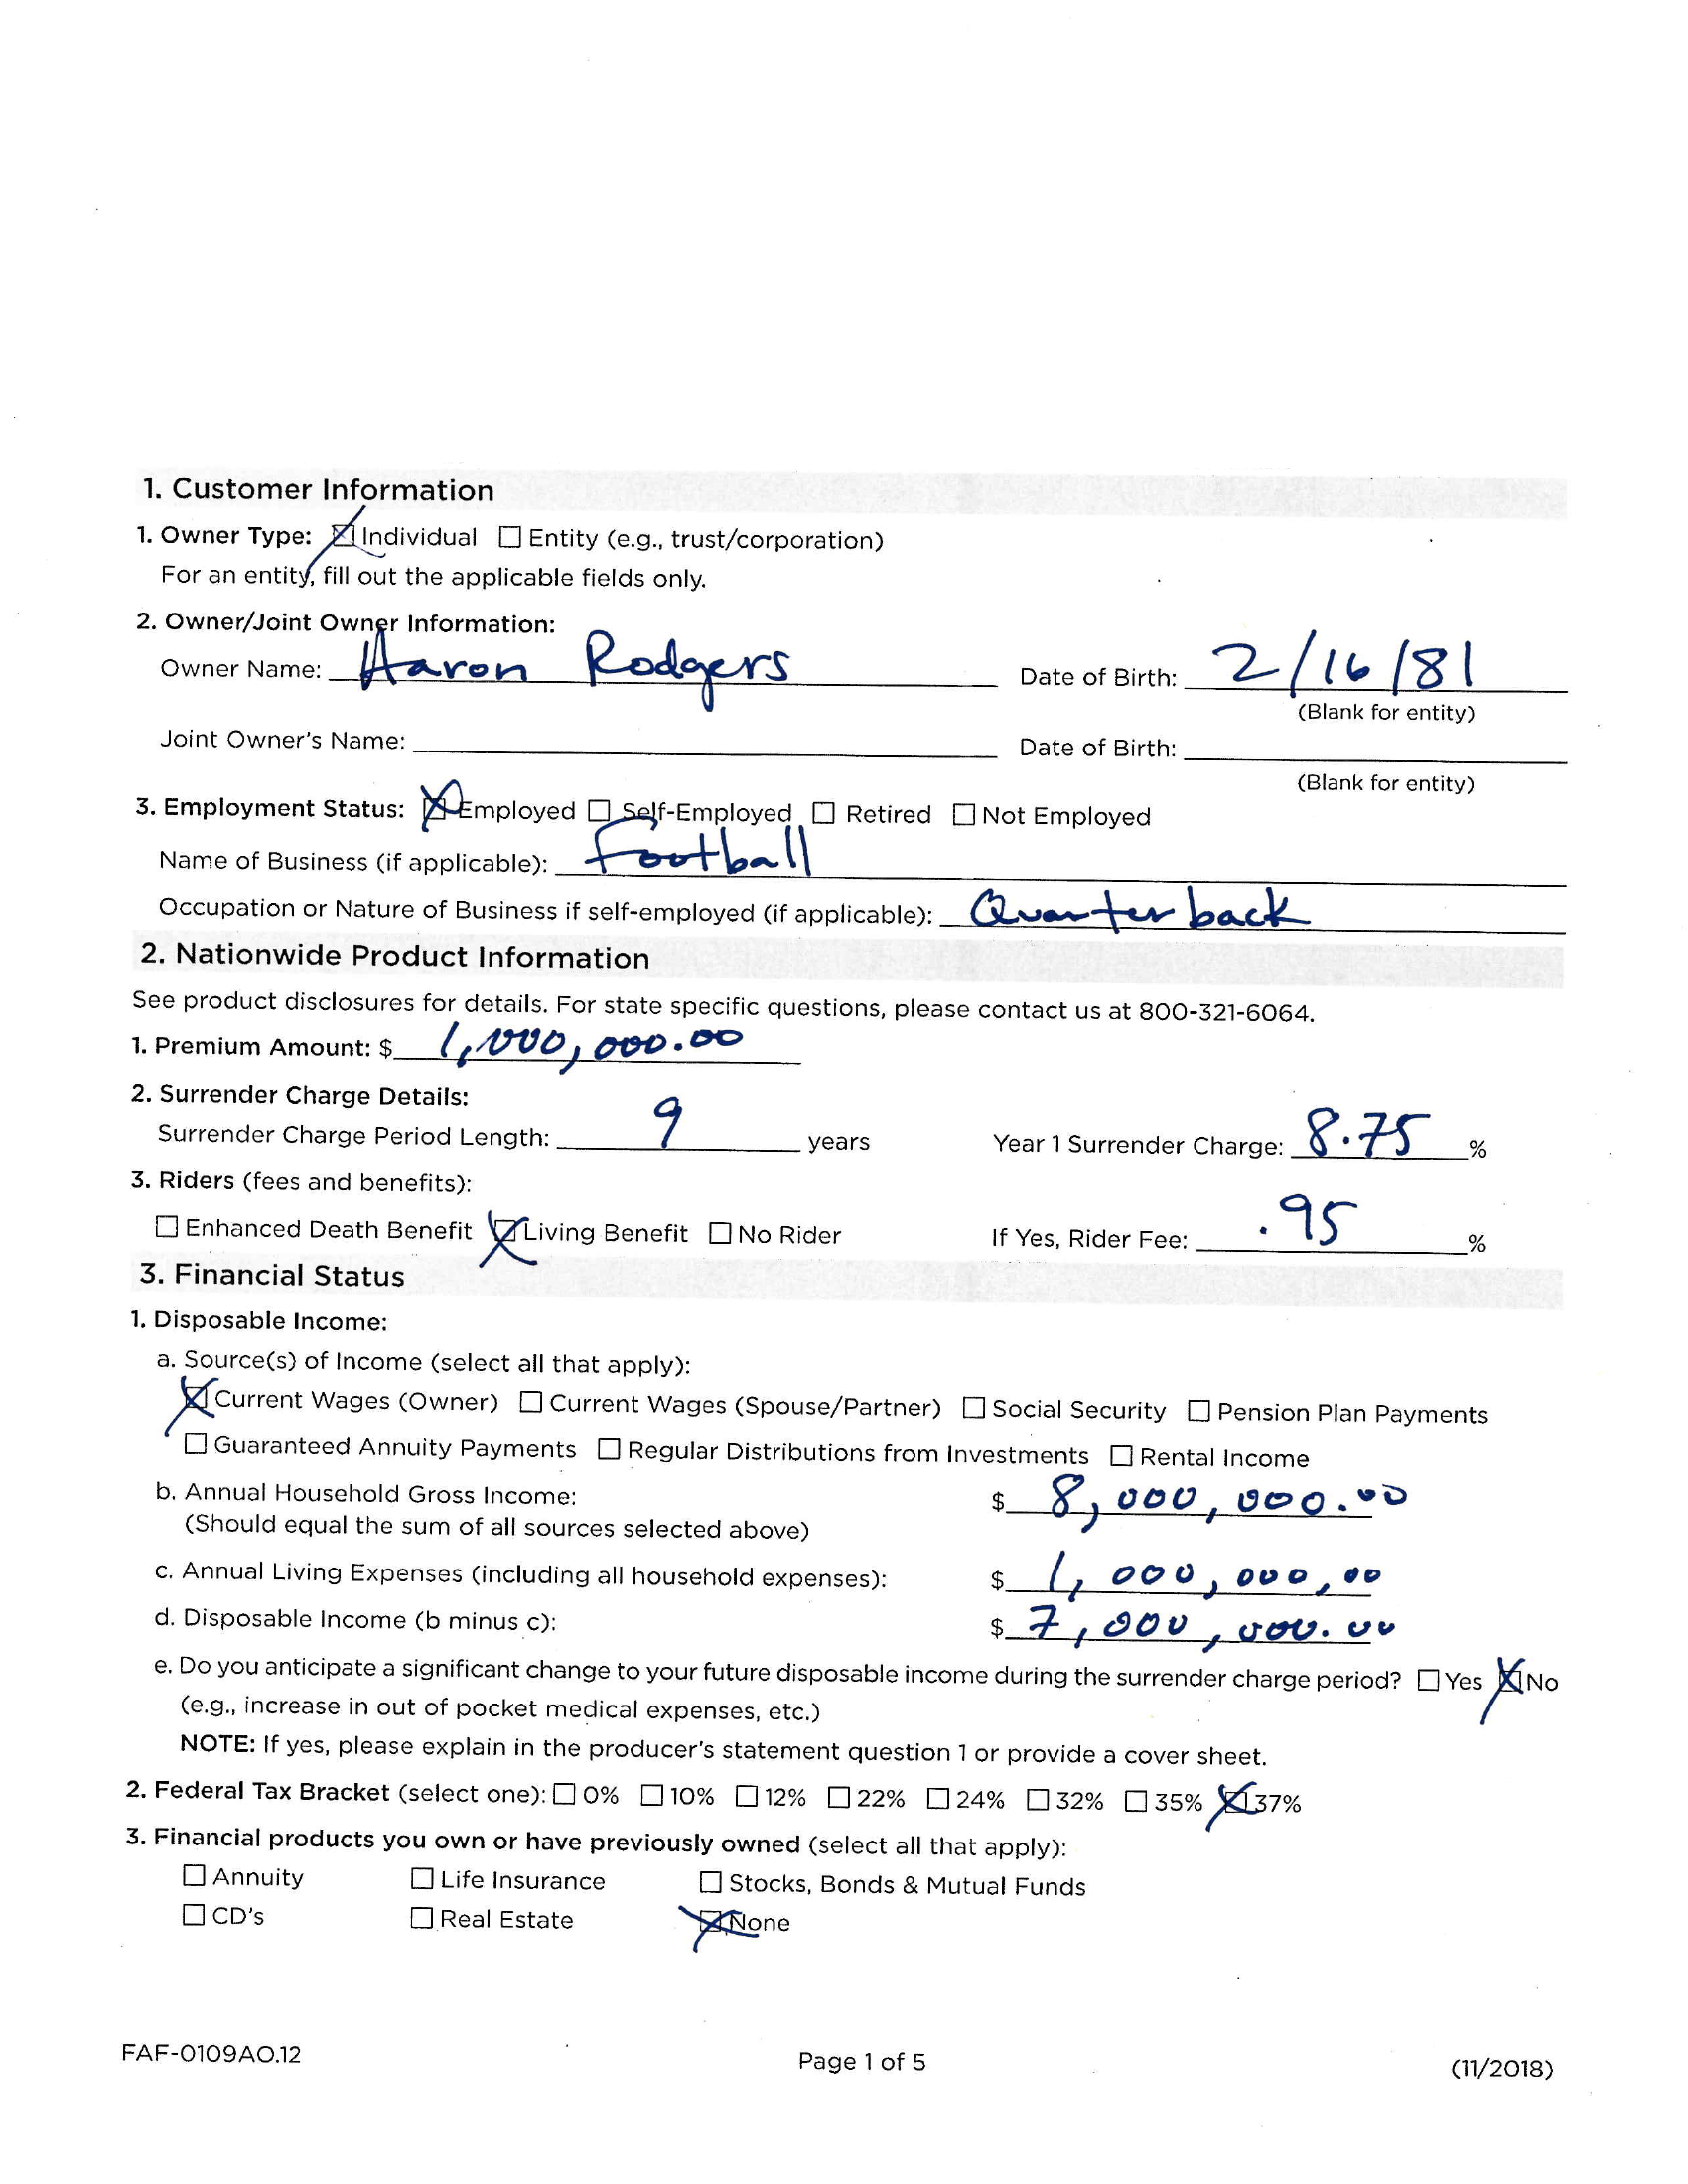 1. Customer Information
1. Owner Type: ☒ Individual ☐ Entity (e.g., trust/corporation)
For an entity, fill out the applicable fields only.
2. Owner/Joint Owner Information:
Owner Name: Aaron Rodgers Date of Birth: 2/16/81
(Blank for entity)
Joint Owner's Name: Date of Birth:
(Blank for entity)
3. Employment Status: ☒ Employed ☐ Self-Employed ☐ Retired ☐ Not Employed
Name of Business (if applicable): Football
Occupation or Nature of Business if self-employed (if applicable): Quarterback
2. Nationwide Product Information
See product disclosures for details. For state specific questions, please contact us at 800-321-6064.
1. Premium Amount: $ 1,000,000.00
2. Surrender Charge Details:
Surrender Charge Period Length: 9 years Year 1 Surrender Charge: 8.75 %
3. Riders (fees and benefits):
☐ Enhanced Death Benefit ☒ Living Benefit ☐ No Rider If Yes, Rider Fee: .95 %
3. Financial Status
1. Disposable Income:
a. Source(s) of Income (select all that apply):
☒ Current Wages (Owner) ☐ Current Wages (Spouse/Partner) ☐ Social Security ☐ Pension Plan Payments
☐ Guaranteed Annuity Payments ☐ Regular Distributions from Investments ☐ Rental Income
b. Annual Household Gross Income: $ 8,000,000.00
(Should equal the sum of all sources selected above)
c. Annual Living Expenses (including all household expenses): $ 1,000,000,00
d. Disposable Income (b minus c): $ 7,000,000.00
e. Do you anticipate a significant change to your future disposable income during the surrender charge period? ☐ Yes ☒ No
(e.g., increase in out of pocket medical expenses, etc.)
NOTE: If yes, please explain in the producer's statement question 1 or provide a cover sheet.
2. Federal Tax Bracket (select one): ☐ 0% ☐ 10% ☐ 12% ☐ 22% ☐ 24% ☐ 32% ☐ 35% ☒ 37%
3. Financial products you own or have previously owned (select all that apply):
☐ Annuity ☐ Life Insurance ☐ Stocks, Bonds & Mutual Funds
☐ CD's ☐ Real Estate ☒ None
FAF-0109AO.12 Page 1 of 5 (11/2018)